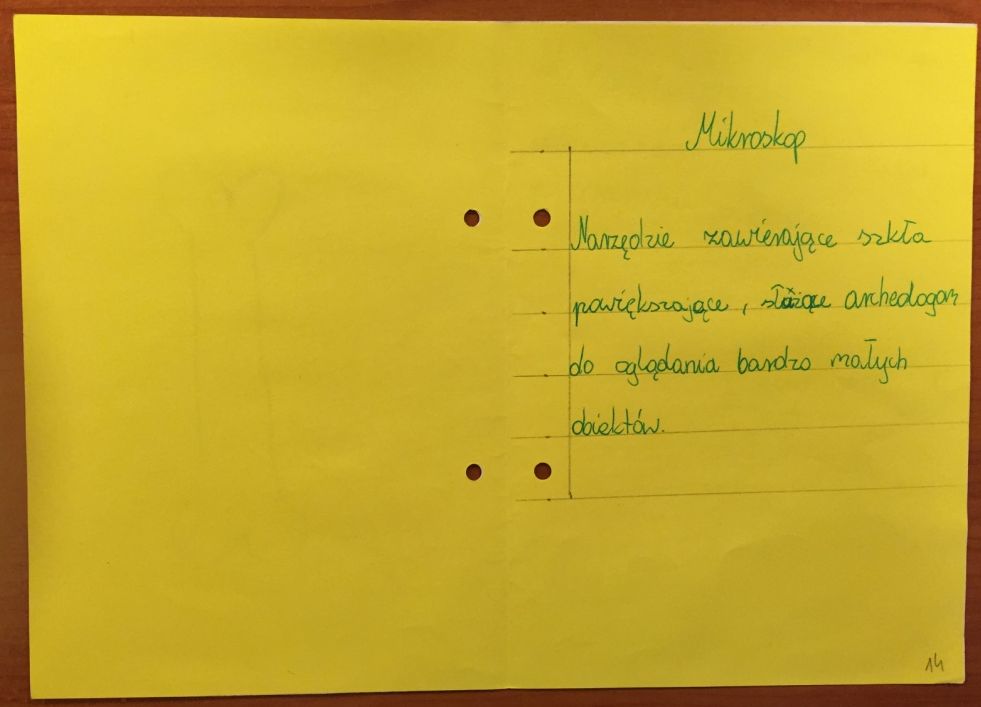 Mikroskop
Narzędzie zawierające szkła
powiększające, służące archeologom
do oglądania bardzo małych
obiektów.
14